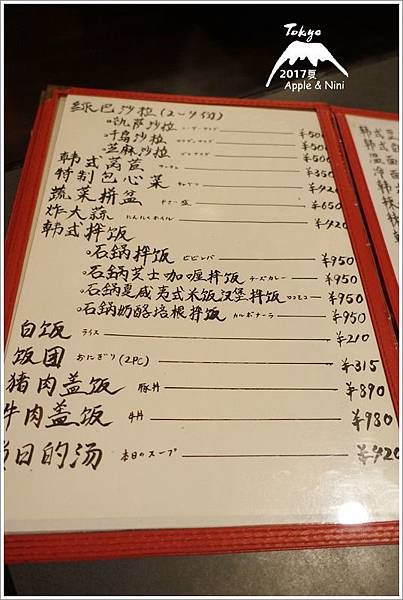 Tokyo
2017夏
Apple & Nini
绿巴沙拉(2~4份)
•凯萨沙拉 シーザーサラダ ¥500
•千岛沙拉 ¥500
•芝麻沙拉 ¥500
韩式莴苣 ¥350
特制包心菜 キャベツ ¥420
蔬菜拼盆 ¥650
炸大蒜 にんにくホイル ¥420
韩式拌饭
•石锅拌饭 ビビンバ ¥950
•石锅芝士咖喱拌饭 チーズカレー ¥950
•石锅夏威夷式米饭汉堡拌饭 ロコモコ ¥950
•石锅奶酪培根拌饭 カルボナーラ ¥950
白饭 ライス ¥210
饭团 おにぎり(2PC) ¥315
猪肉盖饭 豚丼 ¥890
牛肉盖饭 牛丼 ¥980
日的汤 本日のスープ ¥420
韩式
韩式
温面
冷面
韩